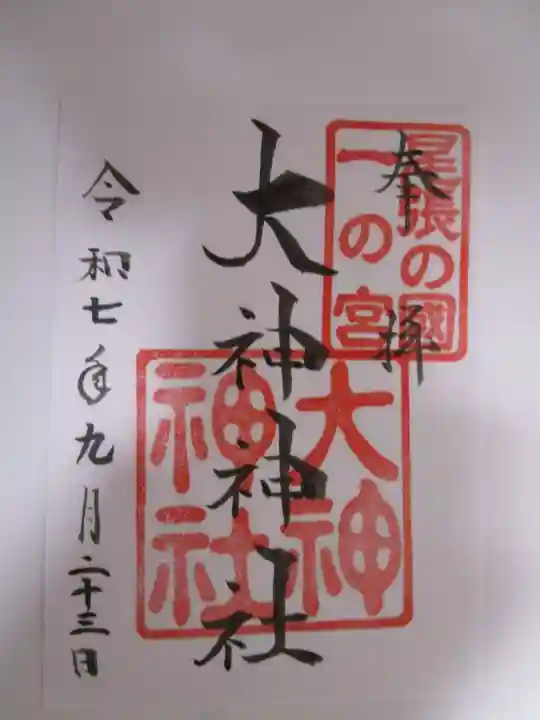 奉拝
尾張の國
一の宮
大神神社
大神
神社
令和七年九月二十三日